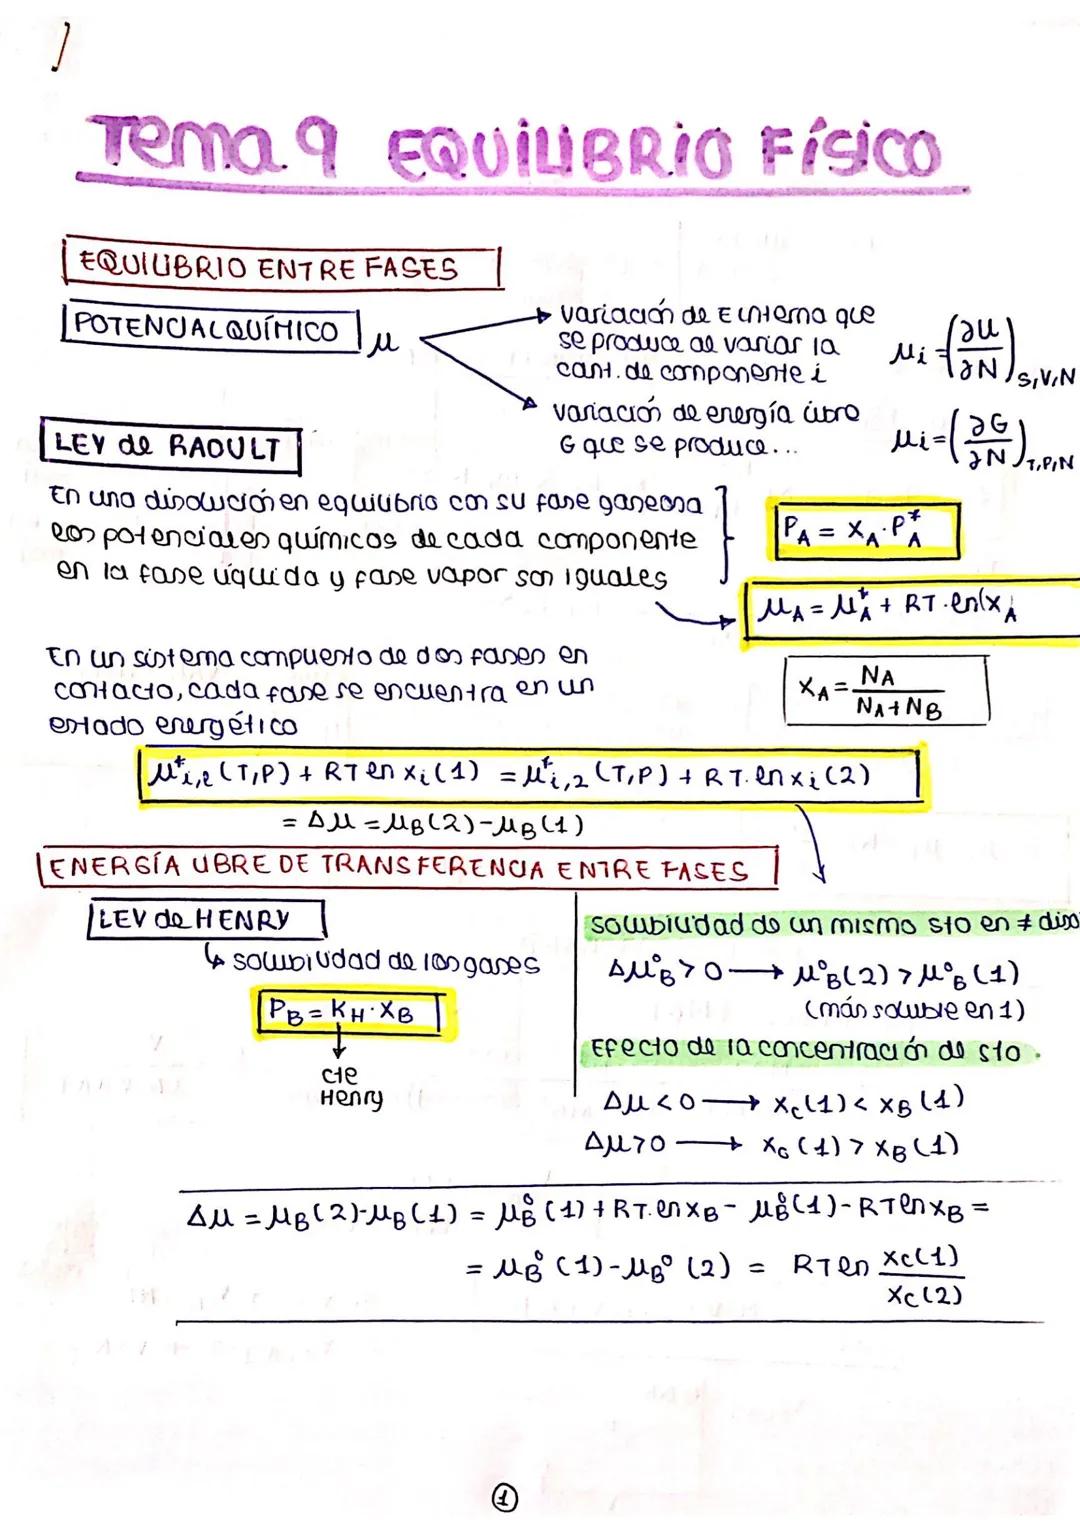 Tema 9 EQUILIBRIO FÍSICO
EQUILIBRIO ENTRE FASES
POTENCIAL QUÍMICO μ
variación de E interna que
se produce al variar la
cant. de componente i
μi = (∂U/∂N)S,V,N
variación de energía libre
G que se produce...
μi = (∂G/∂N)T,P,N
LEY de RAOULT
En una disolución en equilibrio con su fase gaseosa
los potenciales químicos de cada componente
en la fase líquida y fase vapor son iguales
PA = XA · P*A
μA = μ*A + RT · ln(xA
XA = NA / NA + NB
En un sistema compuesto de dos fases en
contacto, cada fase se encuentra en un
estado energético
μ*i,l (T,P) + RT ln xi (1) = μ*i,2 (T,P) + RT. ln xi (2)
= Δμ = μB(2) - μB(1)
ENERGÍA LIBRE DE TRANSFERENCIA ENTRE FASES
LEY de HENRY
↳ solubilidad de los gases
PB = KH · XB
cte
Henry
solubilidad de un mismo sto en ≠ diso
Δμ°B > 0 → μ°B(2) > μ°B(1)
(más soluble en 1)
Efecto de la concentración de sto.
Δμ < 0 → xc(1) < xB(1)
Δμ > 0 → xc(1) > xB(1)
Δμ = μB(2) - μB(1) = μ°B(1) + RT. ln xB - μ°B(1) - RT ln xB =
= μ°B(1) - μB°(2) = RT ln xc(1) / xc(2)
1